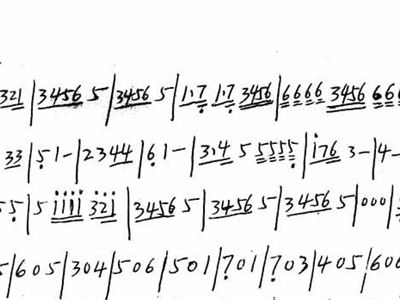 321|3456 5|3456 5|1·7 1·7 3456|6666 3456 666
33|51-|2344|61-|3·4 5 5555|i76 3-|4-
55|5 1111 321|3456 5|3456 5|3456 5|000|
5|605|304|506|501|701|703|405|606